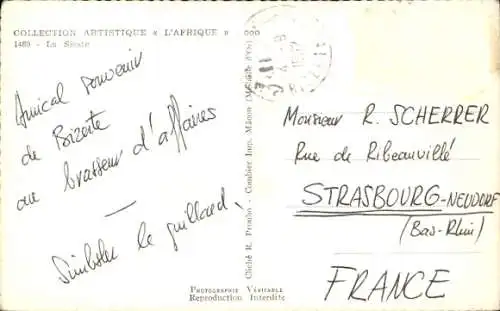 COLLECTION ARTISTIQUE « L'AFRIQUE »
1489 - La Sieste
Amical souvenir
de Bizerte
au brasseur d'affaires
le guillard,
Cliché R. Prouho - Combier Imp. Mâcon (Médaille d'Or)
Monsieur R. SCHERRER
Rue de Ribeauvillé
STRASBOURG-NEUDORF
(Bas-Rhin)
FRANCE
PHOTOGRAPHIE VÉRITABLE
Reproduction Interdite